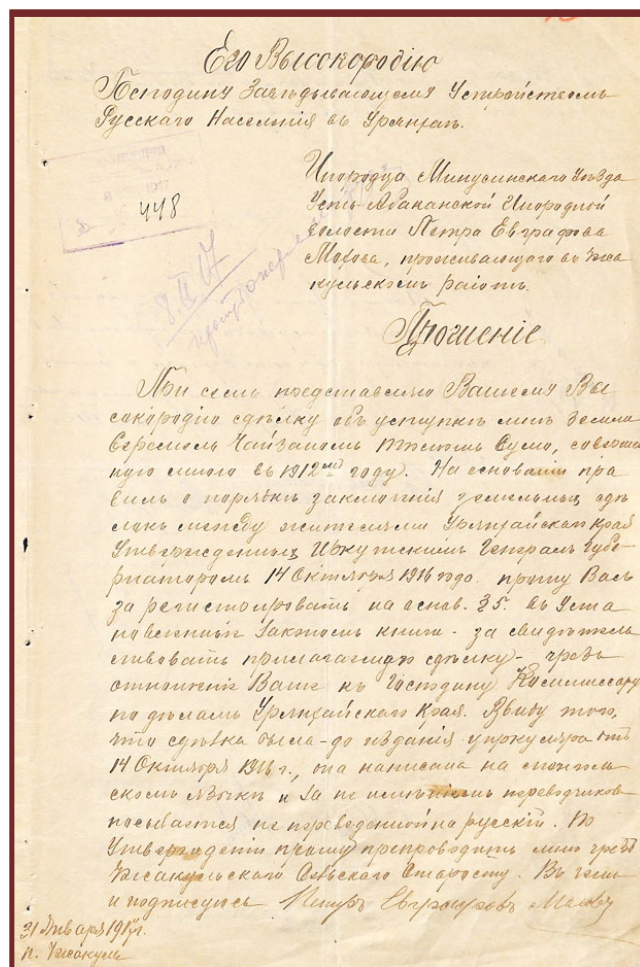 Его Высокородію
Господину Завѣдывающему Устройствомъ
Русскаго Населенія въ Урянхаѣ.
448
Инородца Минусинскаго Уѣзда
Усть-Абаканской Инородной
волости Петра Евграфова
проживающаго въ Ужа
кульскомъ раіонѣ.
8.II.17
Прошеніе
При семъ представляю Вашему Вы
сокородію сдѣлку объ уступкѣ мнѣ земли
Чайзаномъ Сумо, соверше
ную мною въ 1912 году. На основаніи пра
вилъ о порядкѣ заключенія земельныхъ сдѣ
локъ между жителями Урянхайскаго края
Утвержденныхъ Иркутскимъ Генералъ Губе-
рнаторомъ 14 Октября 1916 года. прошу Васъ
за регистрировать на основ. §5. въ Уста
новленной Закономъ книгѣ. за свидѣтель
ствовать прилагаемую сдѣлку - чрезъ
отношеніе Ваше къ Господину Коммиссару
по дѣламъ Урянхайскаго Края. Ввиду того,
что сдѣлка была - до изданія циркуляра отъ
14 Октября 1916 г., она написана на монголь
скомъ языкѣ и за не имѣніемъ переводчиковъ
посылается не переведенной на русскій. По
Утвержденіи прошу препроводить мнѣ чрезъ
Ужакульскаго Сельскаго Старосту. Въ чемъ
и подписуюсь Петръ Евграфовъ
31 Января 1917 г.
п. Ужакуль